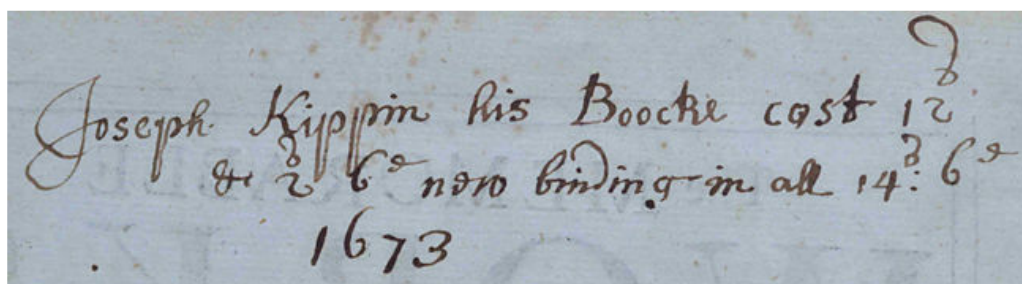 Joseph Kippin his Boocke cost 12s
& 2s 6d new binding in all 14s: 6d
1673